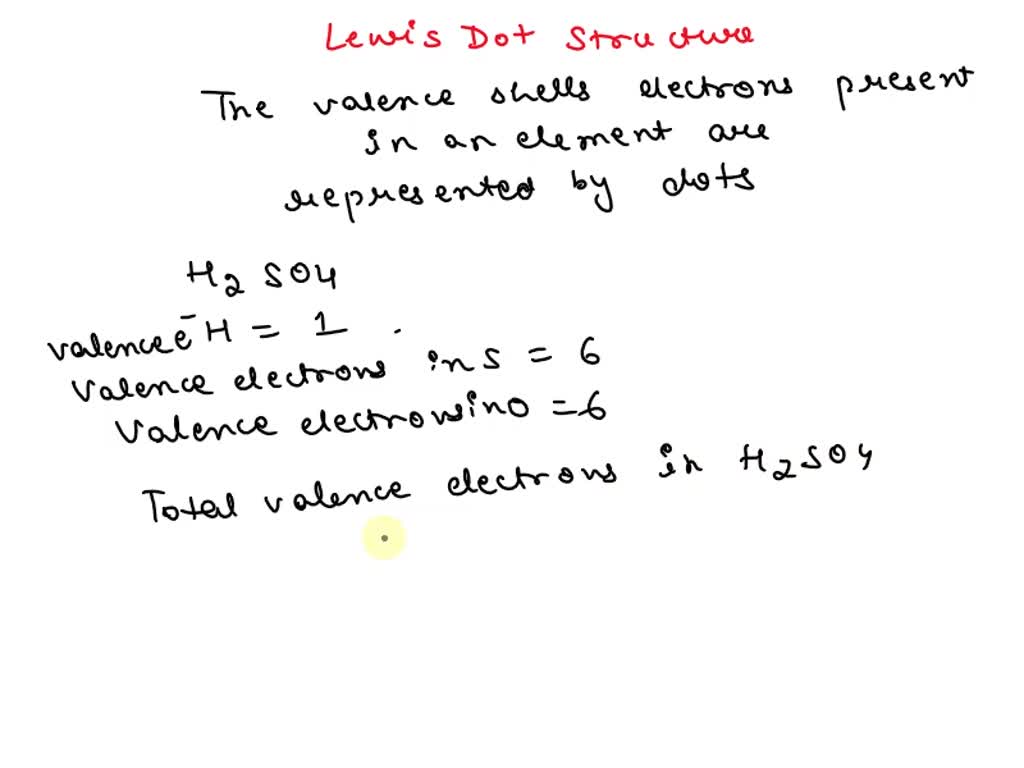 Lewis Dot Structure
The valence shells electrons present
in an element are
represented by dots
H2SO4
valence e⁻ H = 1 .
Valence electrons in S = 6
Valence electrons in O = 6
Total valence electrons in H2SO4